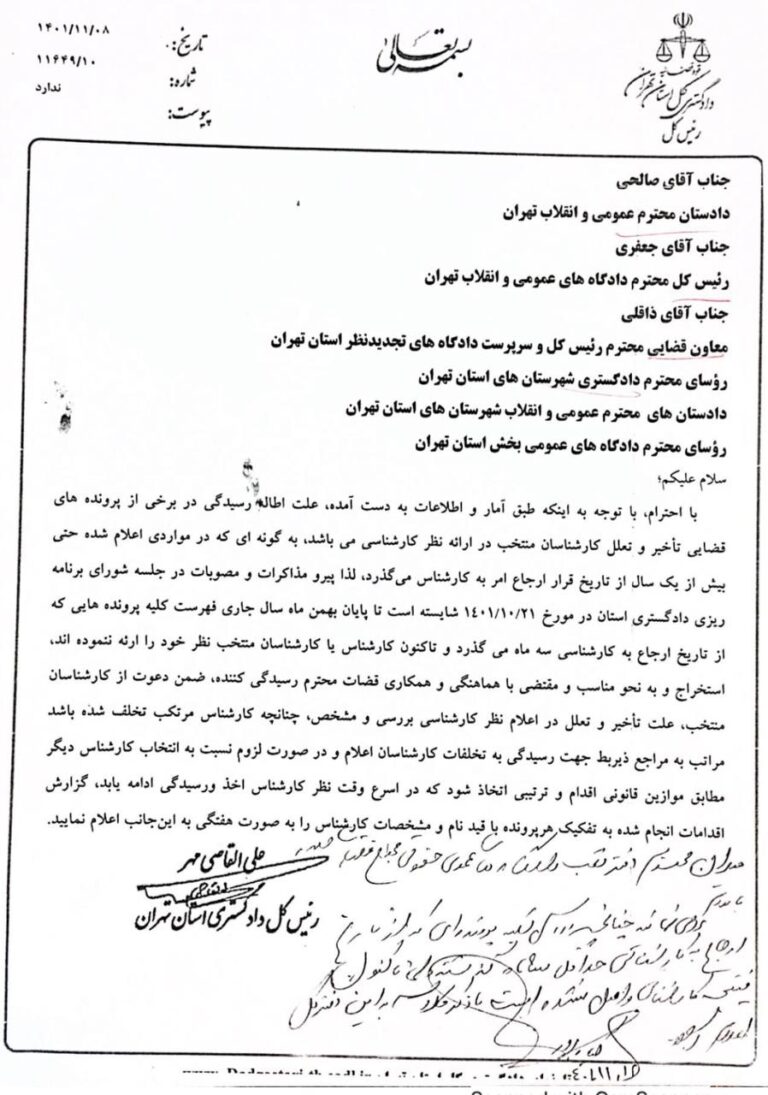 بسمه تعالی
قوه قضائیه
دادگستری کل استان تهران
رئیس کل
تاریخ: ۱۴۰۱/۱۱/۰۸
شماره: ۱۱۶۴۹/۱۰
پیوست: ندارد
جناب آقای صالحی
دادستان محترم عمومی و انقلاب تهران
جناب آقای جعفری
رئیس کل محترم دادگاه های عمومی و انقلاب تهران
جناب آقای ذاقلی
معاون قضایی محترم رئیس کل و سرپرست دادگاه های تجدیدنظر استان تهران
رؤسای محترم دادگستری شهرستان های استان تهران
دادستان های محترم عمومی و انقلاب شهرستان های استان تهران
رؤسای محترم دادگاه های عمومی بخش استان تهران
سلام علیکم؛
با احترام، با توجه به اینکه طبق آمار و اطلاعات به دست آمده، علت اطاله رسیدگی در برخی از پرونده های
قضایی تأخیر و تعلل کارشناسان منتخب در ارائه نظر کارشناسی می باشد، به گونه ای که در مواردی اعلام شده حتی
بیش از یک سال از تاریخ قرار ارجاع امر به کارشناس می‌گذرد، لذا پیرو مذاکرات و مصوبات در جلسه شورای برنامه
ریزی دادگستری استان در مورخ ۱۴۰۱/۱۰/۲۱ شایسته است تا پایان بهمن ماه سال جاری فهرست کلیه پرونده هایی که
از تاریخ ارجاع به کارشناسی سه ماه می گذرد و تاکنون کارشناس یا کارشناسان منتخب نظر خود را ارئه ننموده اند،
استخراج و به نحو مناسب و مقتضی با هماهنگی و همکاری قضات محترم رسیدگی کننده، ضمن دعوت از کارشناسان
منتخب، علت تأخیر و تعلل در اعلام نظر کارشناسی بررسی و مشخص، چنانچه کارشناس مرتکب تخلف شده باشد
مراتب به مراجع ذیربط جهت رسیدگی به تخلفات کارشناسان اعلام و در صورت لزوم نسبت به انتخاب کارشناس دیگر
مطابق موازین قانونی اقدام و ترتیبی اتخاذ شود که در اسرع وقت نظر کارشناس اخذ ورسیدگی ادامه یابد، گزارش
اقدامات انجام شده به تفکیک هرپرونده با قید نام و مشخصات کارشناس را به صورت هفتگی به این‌جانب اعلام نمایید.
علی القاصی مهر
رئیس کل دادگستری استان تهران
مدیران محترم دفتر شعب دادگاه های عمومی حقوقی مجتمع قضایی
با سلام
ارجاع به کارشناسی حداقل سه ماه گذشته ولی تاکنون
اعلام